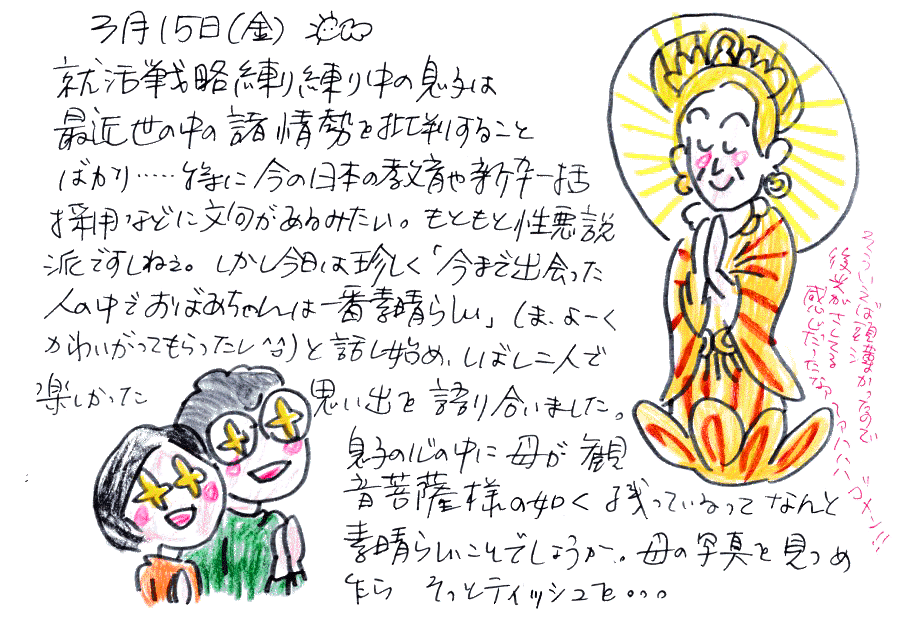 3月15日(金)
就活戦略練り練り中の息子は
最近世の中の諸情勢を批判すること
ばかり……特に今の日本の教育や新卒一括
採用などに文句があるみたい。もともと性悪説
派ですしねぇ。しかし今日は珍しく「今まで出会った
人の中でおばあちゃんは一番素晴らしい」(ま、よーく
かわいがってもらったし^^)と話し始め、しばし二人で
楽しかった 思い出を語り合いました。
息子の心の中に母が観
音菩薩様の如く残っているってなんと
素晴らしいことでしょうか。母の写真を見つめ
たら そっとティッシュを。。。
そういえば頭薄かったので
後光がさしてる
感じだったなァ アハハハ ゴメン!!